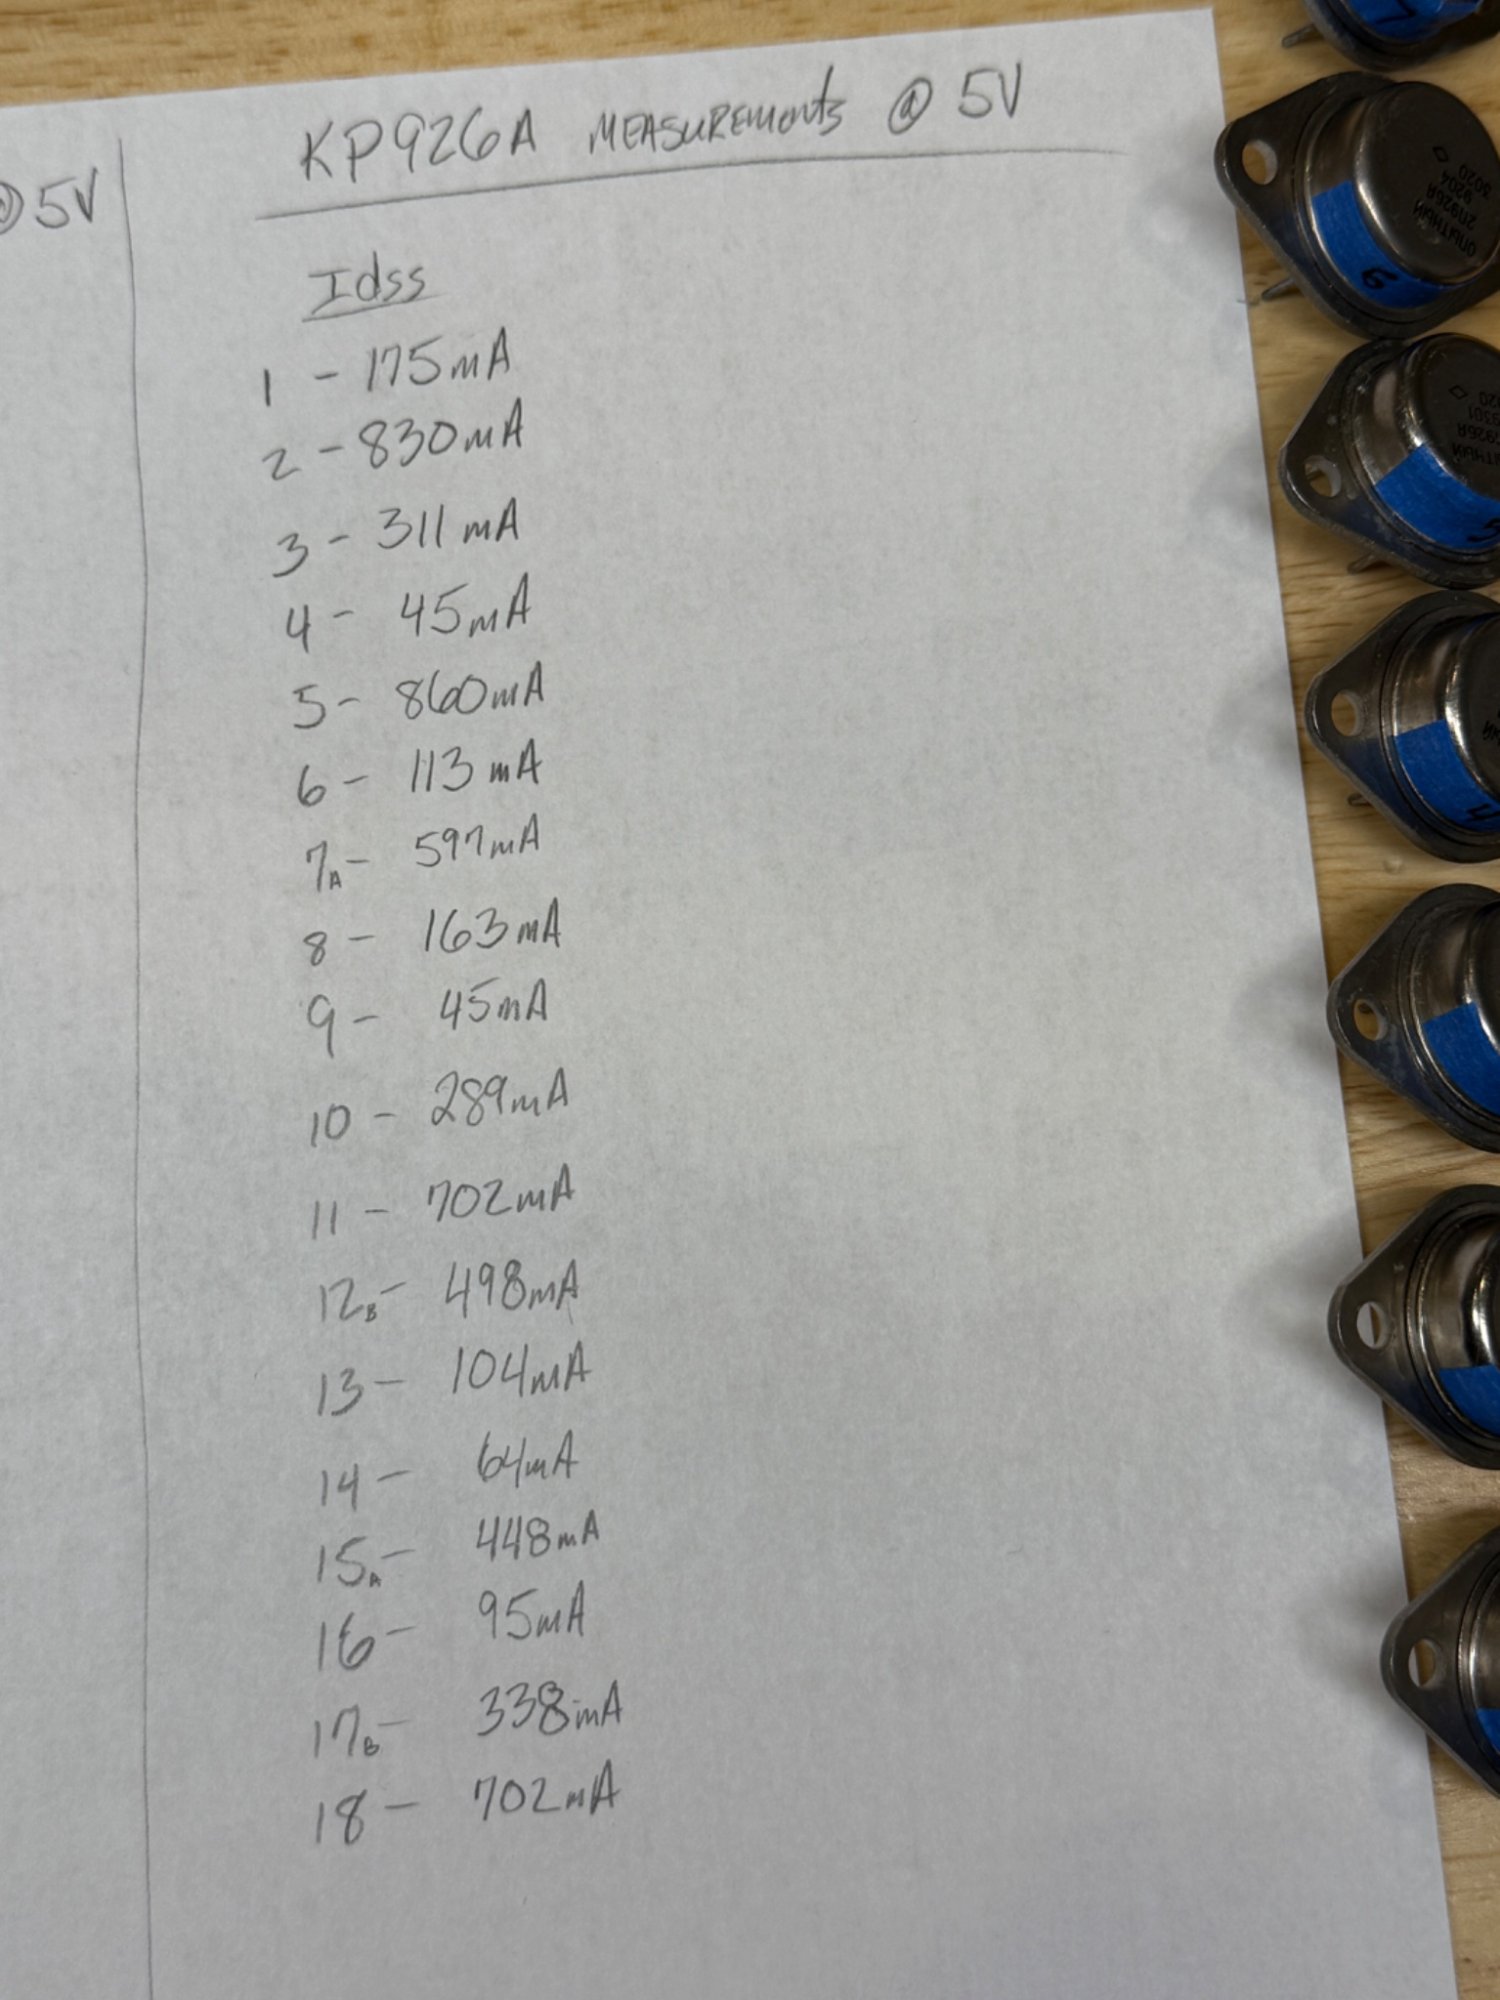 @ 5V
KP926A MEASUREMENTS @ 5V
Idss
1 - 175mA
2 - 830mA
3 - 311mA
4 - 45mA
5 - 860mA
6 - 113mA
7A - 597mA
8 - 163mA
9 - 45mA
10 - 289mA
11 - 702mA
12B - 498mA
13 - 104mA
14 - 64mA
15A - 448mA
16 - 95mA
17B - 338mA
18 - 702mA
ОПЫТНЫЙ
2П926А
9204
5020
6
5
4